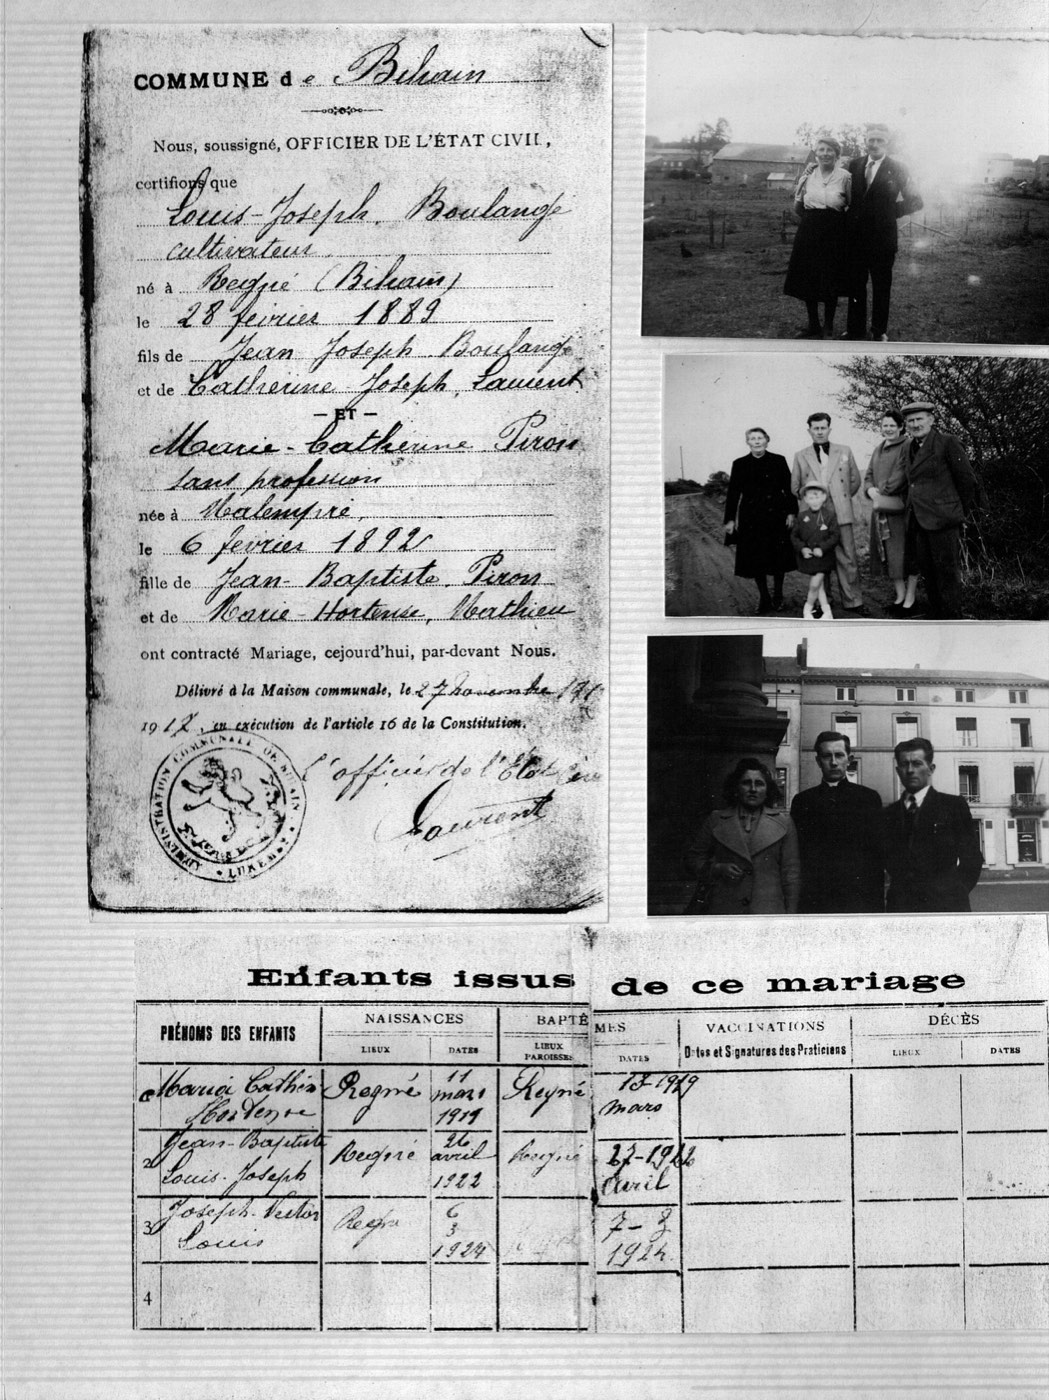 COMMUNE de Bihain
Nous, soussigné, OFFICIER DE L'ÉTAT CIVIL,
certifions que
Louis-Joseph, Boulangé
cultivateur
né à Regné (Bihain)
le 28 février 1889
fils de Jean Joseph Boulangé
et de Catherine Joseph, Laurent
— ET —
Marie-Catherine Piron
sans profession
née à Malempré,
le 6 février 1892
fille de Jean-Baptiste, Piron
et de Marie-Hortense, Mathieu
ont contracté Mariage, cejourd'hui, par-devant Nous.
Délivré à la Maison communale, le 27 novembre
1917, en exécution de l'article 16 de la Constitution.
ADMINISTRATION COMMUNALE DE BIHAIN
l'officier de l'Etat Civil
Laurent
Enfants issus de ce mariage
PRÉNOMS DES ENFANTS NAISSANCES BAPTÊMES VACCINATIONS DÉCÈS
LIEUX DATES LIEUX PAROISSES DATES Dates et Signatures des Praticiens LIEUX DATES
Maria Cathérin Hortense Regné 11 mars 1919 Regné 13-1919 mars
2 Jean-Baptiste Louis-Joseph Regné 26 avril 1922 Regné 27-1922 Avril
3 Joseph-Victor Louis Regné 6 3 1924 7-3 1924
4